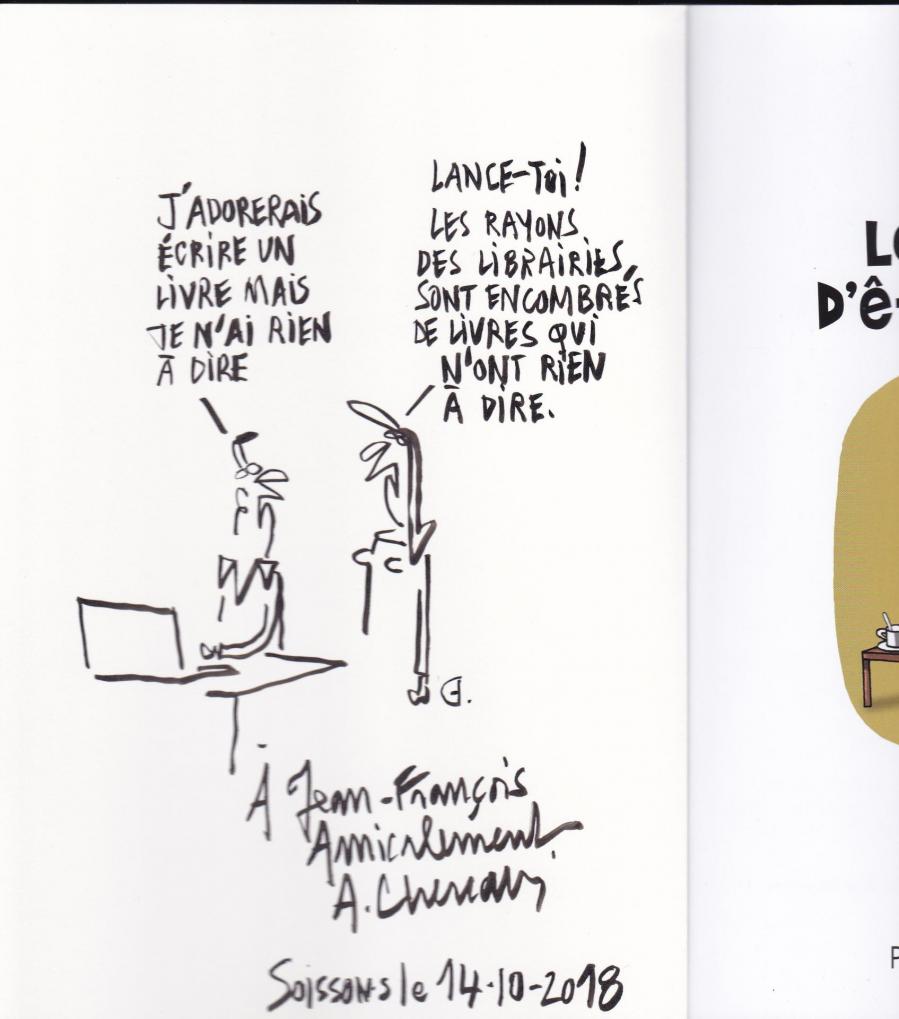 J'ADORERAIS
ÉCRIRE UN
LIVRE MAIS
JE N'AI RIEN
À DIRE
LANCE-TOI!
LES RAYONS
DES LIBRAIRIES,
SONT ENCOMBRÉS
DE LIVRES QUI
N'ONT RIEN
À DIRE.
À Jean-François
Amicalement
A.
Soissons le 14-10-2018
D'ê
P